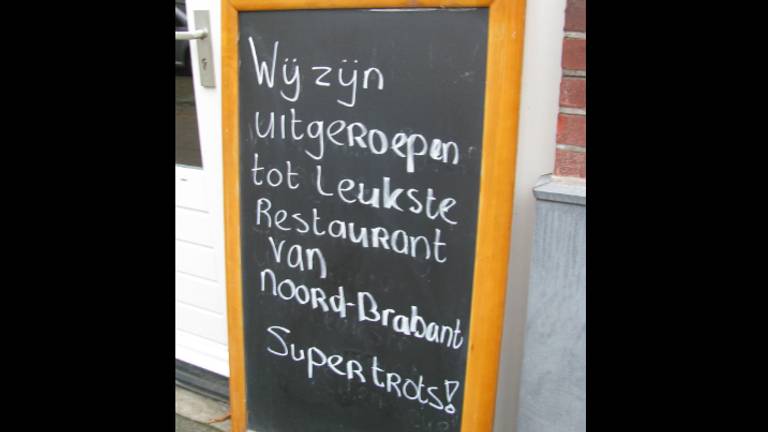 Wij zijn
uitgeroepen
tot Leukste
Restaurant
van
Noord-Brabant
Supertrots!